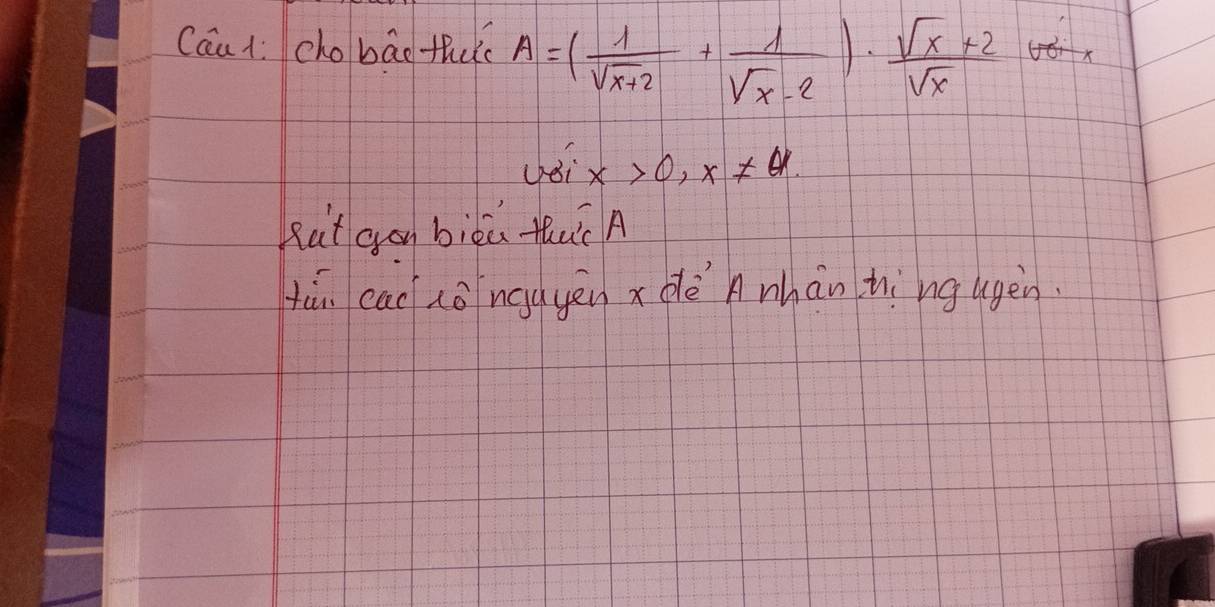 Câu 1: Cho bâc thức A = (1/√x+2 + 1/√x-2) . √x+2/√x
với x > 0, x ≠ 4.
Rút gọn biểu thức A
tìm các số nguyên x để A nhận trị nguyên.